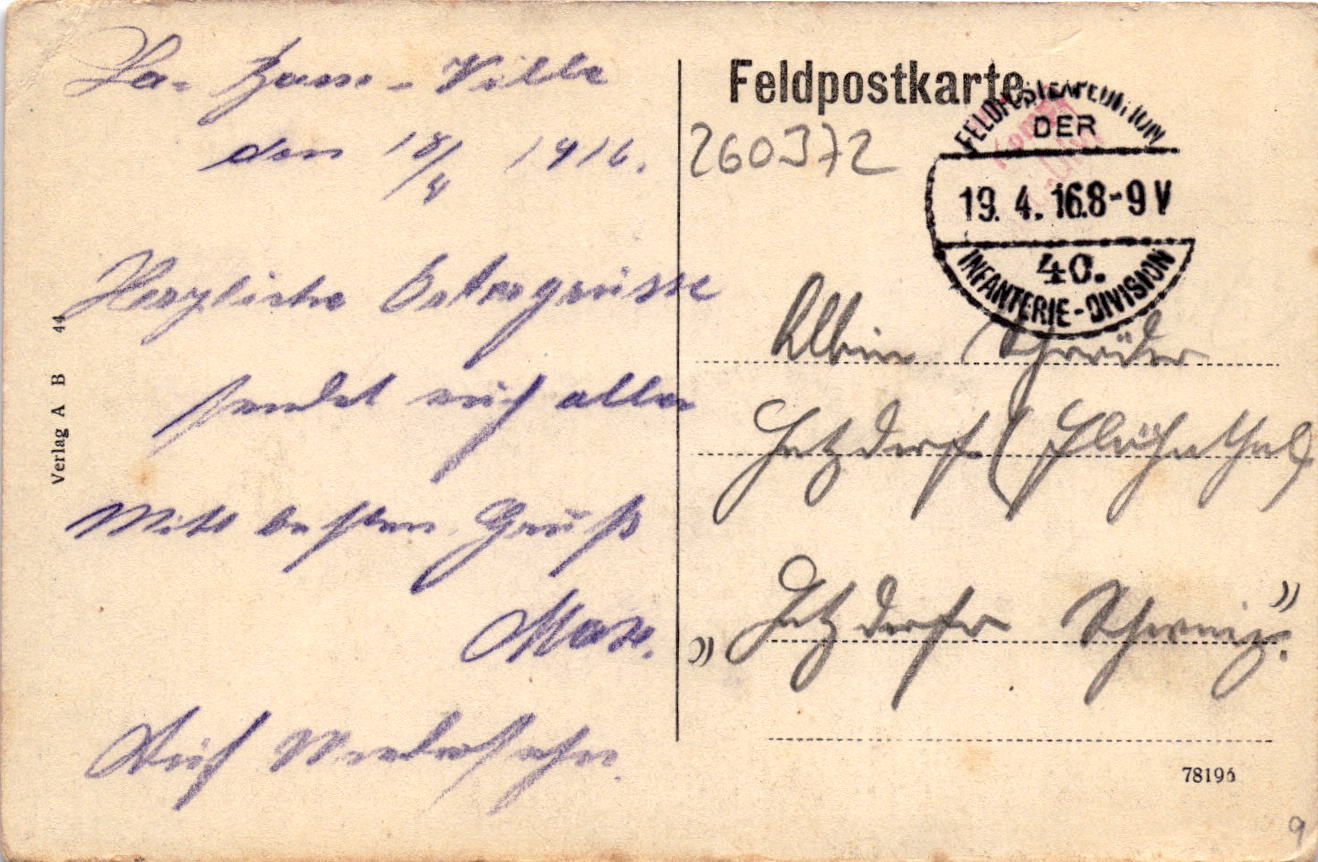 La-Basse-Ville
den 18/4 1916.
Herzliche Ostergrüsse
sendet euch allen
Mit besten Gruß
Max.
Auf Wiedersehn.
Verlag A B 44
Feldpostkarte
260372
FELDPOSTEXPEDITION
DER
19. 4. 16 8-9 V
40.
INFANTERIE-DIVISION
Albin Schröder
Hetzdorf (Flöhathal)
" Hetzdorfer Schweiz."
78196
9